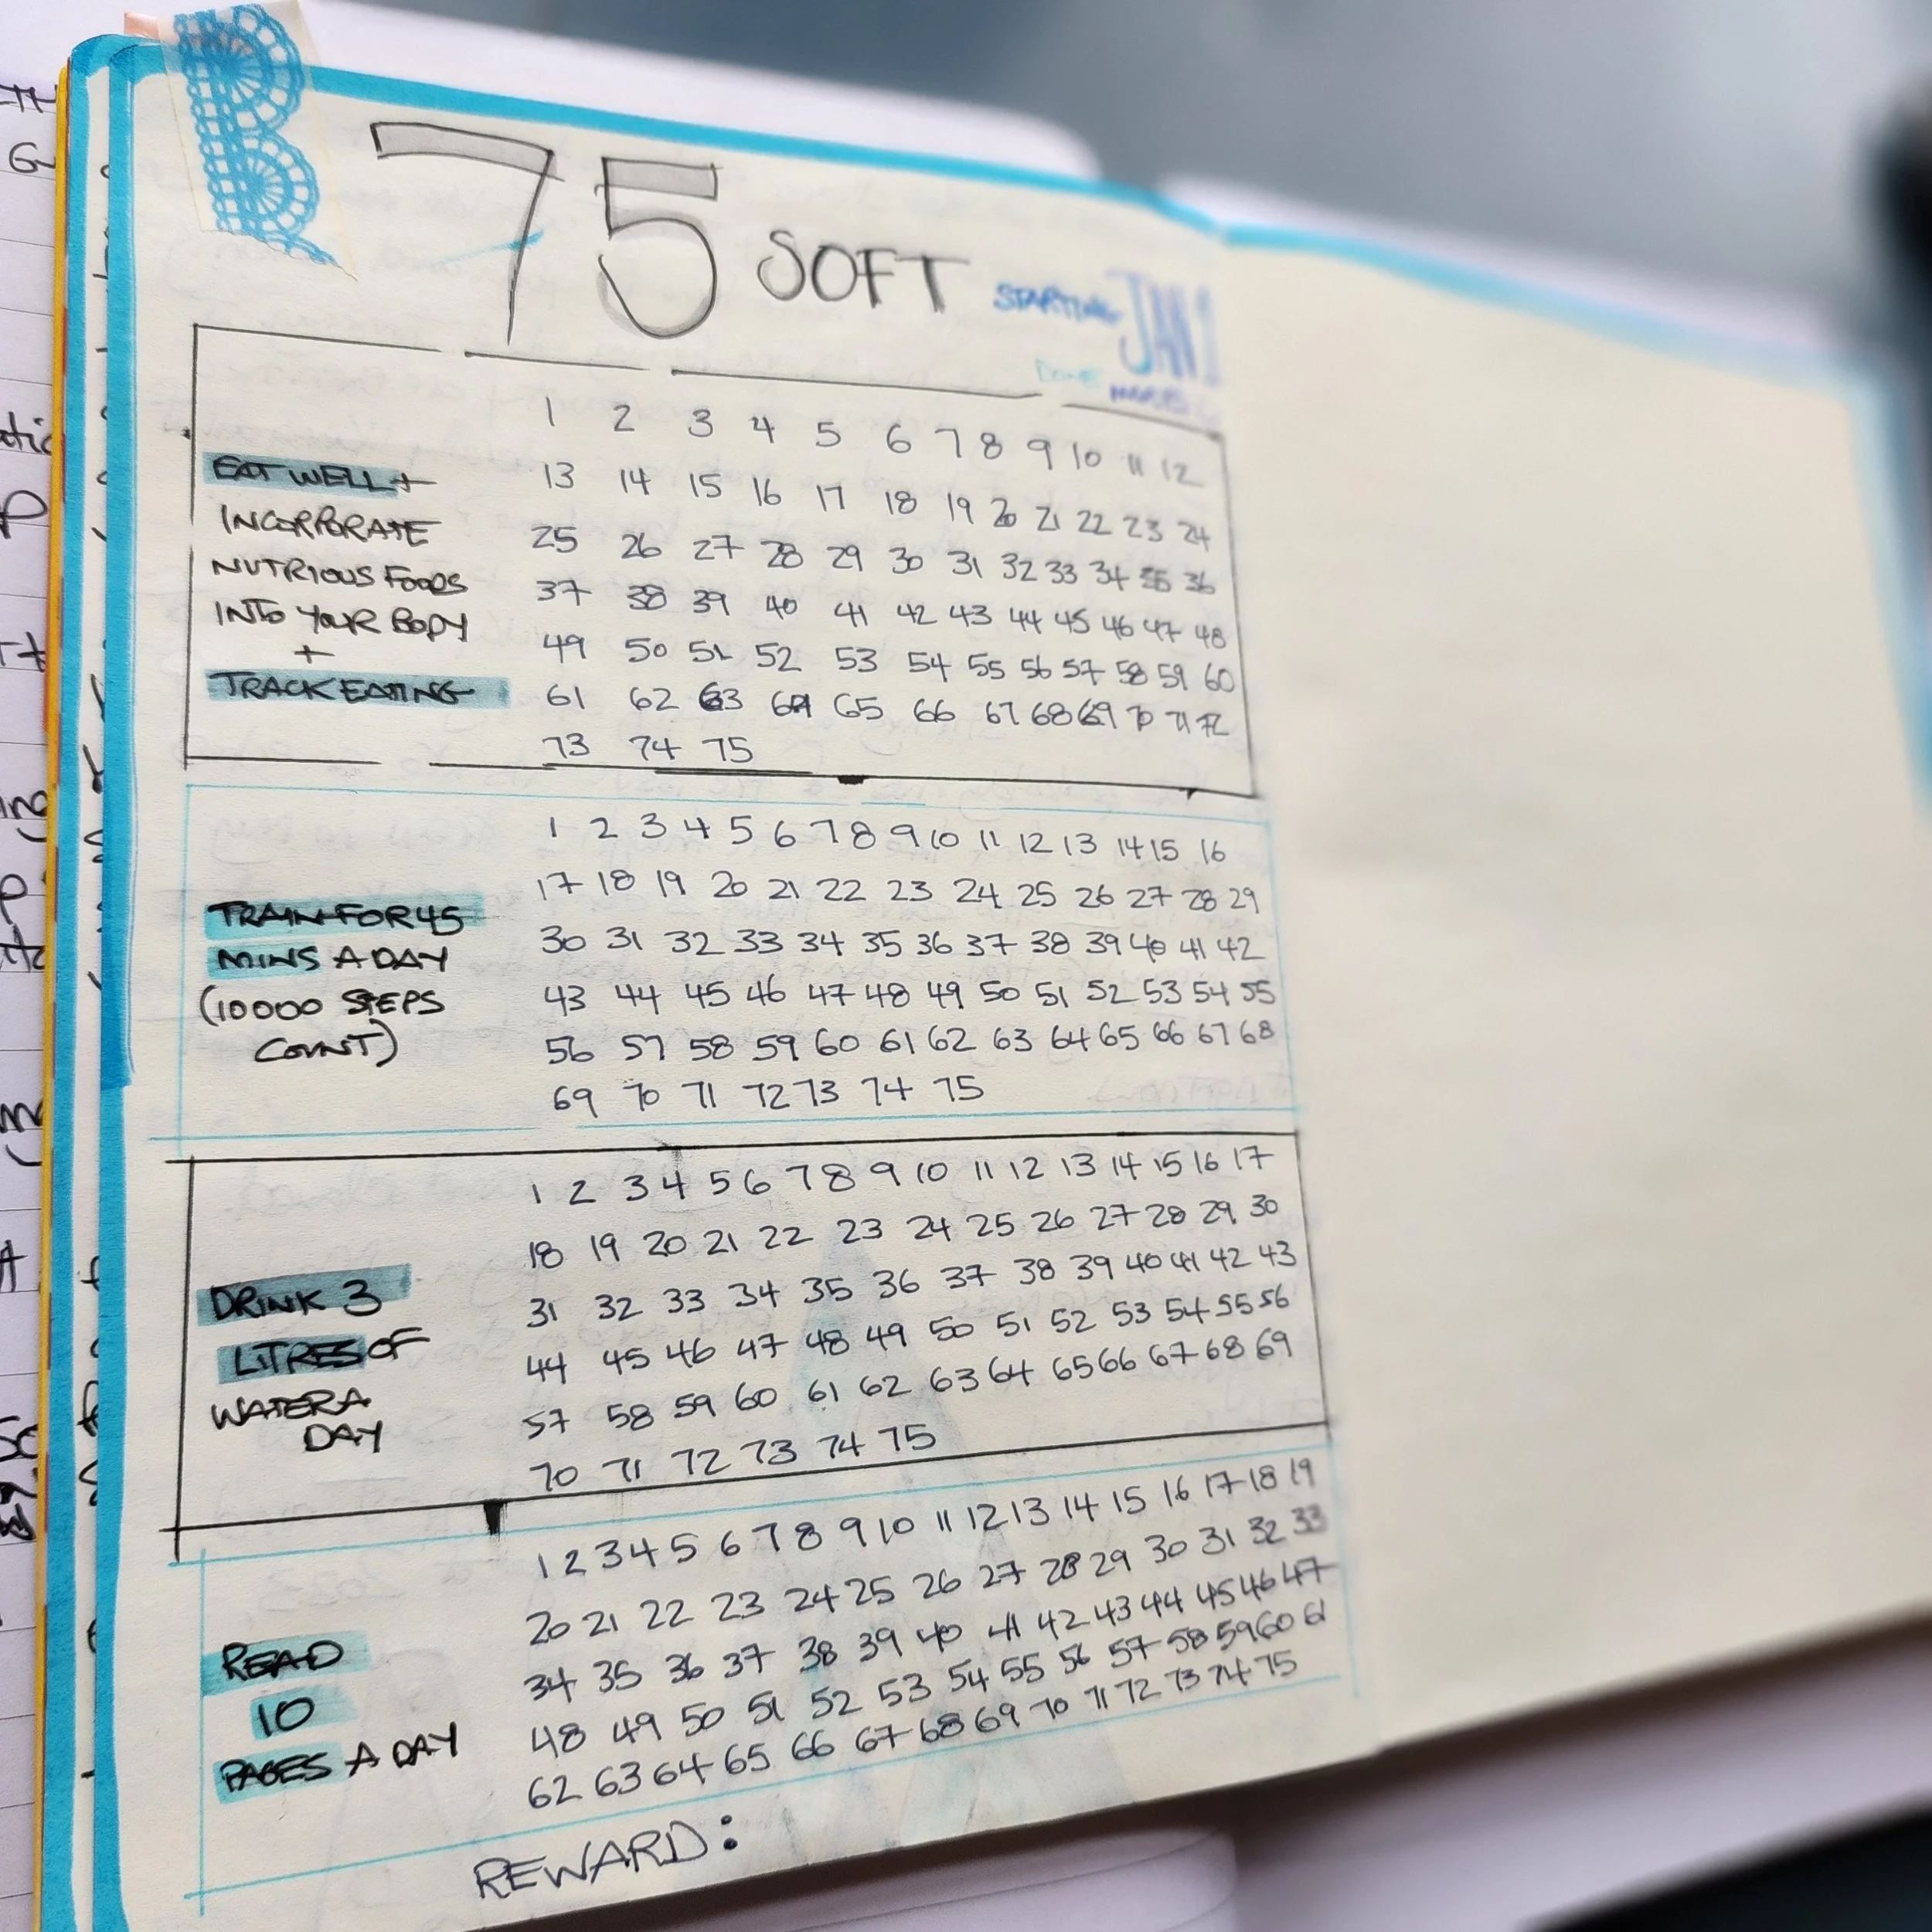 75 SOFT STARTING JAN 1
DONE
1 2 3 4 5 6 7 8 9 10 11 12
13 14 15 16 17 18 19 20 21 22 23 24
25 26 27 28 29 30 31 32 33 34 35 36
37 38 39 40 41 42 43 44 45 46 47 48
49 50 51 52 53 54 55 56 57 58 59 60
61 62 63 64 65 66 67 68 69 70 71 72
73 74 75
EAT WELL +
INCORPORATE
NUTRIOUS FOODS
INTO YOUR BODY
+
TRACK EATING
1 2 3 4 5 6 7 8 9 10 11 12 13 14 15 16
17 18 19 20 21 22 23 24 25 26 27 28 29
30 31 32 33 34 35 36 37 38 39 40 41 42
43 44 45 46 47 48 49 50 51 52 53 54 55
56 57 58 59 60 61 62 63 64 65 66 67 68
69 70 71 72 73 74 75
TRAIN FOR 45
MINS A DAY
(10000 STEPS
COUNT)
1 2 3 4 5 6 7 8 9 10 11 12 13 14 15 16 17
18 19 20 21 22 23 24 25 26 27 28 29 30
31 32 33 34 35 36 37 38 39 40 41 42 43
44 45 46 47 48 49 50 51 52 53 54 55 56
57 58 59 60 61 62 63 64 65 66 67 68 69
70 71 72 73 74 75
DRINK 3
LITRES OF
WATER A
DAY
1 2 3 4 5 6 7 8 9 10 11 12 13 14 15 16 17 18 19
20 21 22 23 24 25 26 27 28 29 30 31 32 33
34 35 36 37 38 39 40 41 42 43 44 45 46 47
48 49 50 51 52 53 54 55 56 57 58 59 60 61
62 63 64 65 66 67 68 69 70 71 72 73 74 75
READ
10
PAGES A DAY
REWARD: